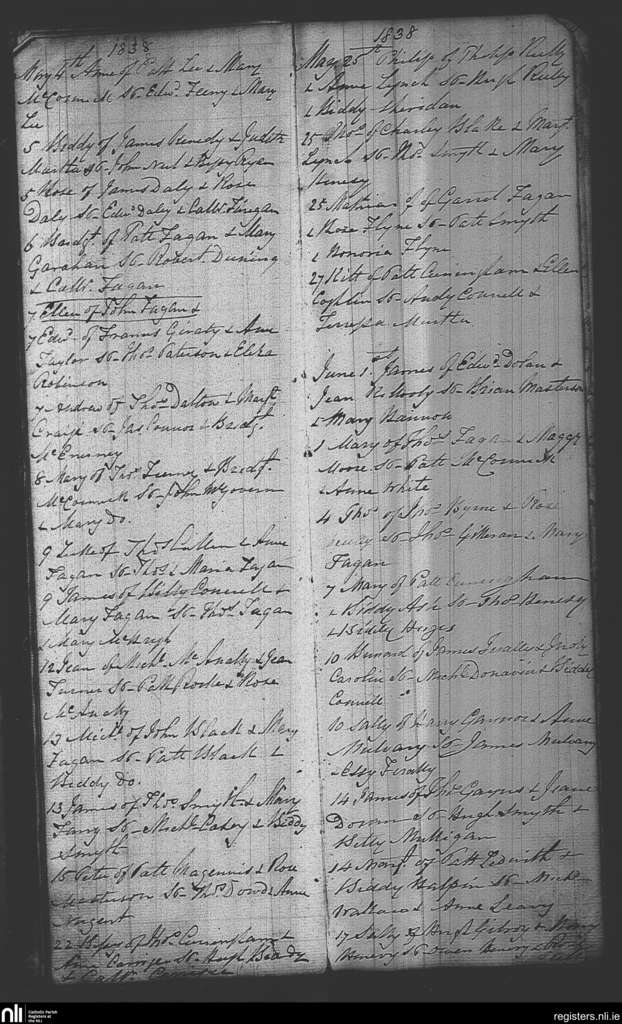 1838
May 4th Anne of Patt Lee & Mary
McCormick Sp. Edwd. Feeny & Mary
Lee
5 Biddy of James Kenedy & Judith
Murtha Sp. John Neil &
5 Rose of James Daly & Rose
Daly Sp. Edwd. Daly & Cathe. Finegan
6 Bridgt. of Patt Fagan & Mary
Garahan Sp. Robert Dunning
& Cathe. Fagan
7 Ellen of John Fagan &
7 Edwd. of Francis Geraty & Anne
Taylor Sp. Thos. Paterson & Eliza
Robinson
7 Andrew of Thos. Dalton & Margt.
Craige Sp. Jas Connor & Bridgt.
McEnerney
8 Mary of Thos. Feeney & Bridgt.
McCormick Sp. John McGovern
& Mary Do.
9 of Thos. Cullen & Anne
Fagan Sp. Thos. & Maria Fagan
9 James of Billy Connell &
Mary Fagan Sp. Thos. Fagan
& Mary McHugh
12 Jean of Michl. McAnally & Jean
Turner Sp. Patt Roche & Rose
McAnally
13 Michl. of John Black & Mary
Fagan Sp. Patt Black &
Biddy Do.
13 James of Thos. Smyth & Mary
Farry Sp. Michl. Casey & Biddy
Smyth
15 Peter of Patt Magennis & Rose
Masterson Sp. Thos. Dowd & Anne
Nugent
22 of Thos. Cuningham &
Carrige Sp. Hugh Brady
& Cathe.
1838
May 25th Philip of Philip Reilly
& Anne Lynch Sp. Hugh Reilly
& Biddy Sheridan
25 Thos. of Charley Blake & Margt.
Lynch Sp. Thos. Smyth & Mary
Henesy
25 Mathias of Garret Fagan
& Rose Flynn Sp. Patt Smyth
& Honoria Flyne
27 Kitt of Patt Cuningham & Ellen
Coghlin Sp. Andy Connell &
Teressa Murtha
June 1st James of Edwd. Dolan &
Jean Sp. Brian Masterson
& Mary Bannon
1 Mary of Thos. Fagan & Maggy
Moore Sp. Patt McCormick
& Anne White
4 Thos. of Thos. Byrne & Rose
Sp. Thos. Gilleran & Mary
Fagan
7 Mary of Patt Cuningham
& Biddy Ash Sp. Thos. Henesy
& Biddy Huges
10 of James &
Caroline Sp. Michl. Donavin & Biddy
Connell
10 Sally of Harry Gannon & Anne
Mulvany Sp. James Mulvany
& Essy
14 James of Thos. & Jeane
Doran Sp. Hugh Smyth &
Betty Mulligan
14 Margt. of Patt &
Biddy Halpin Sp. Michl.
Wallace & Anne Leavy
17 Sally of &
Henery Sp. Owen Henery &
nli
Catholic Parish
Registers at
the NLI
registers.nli.ie